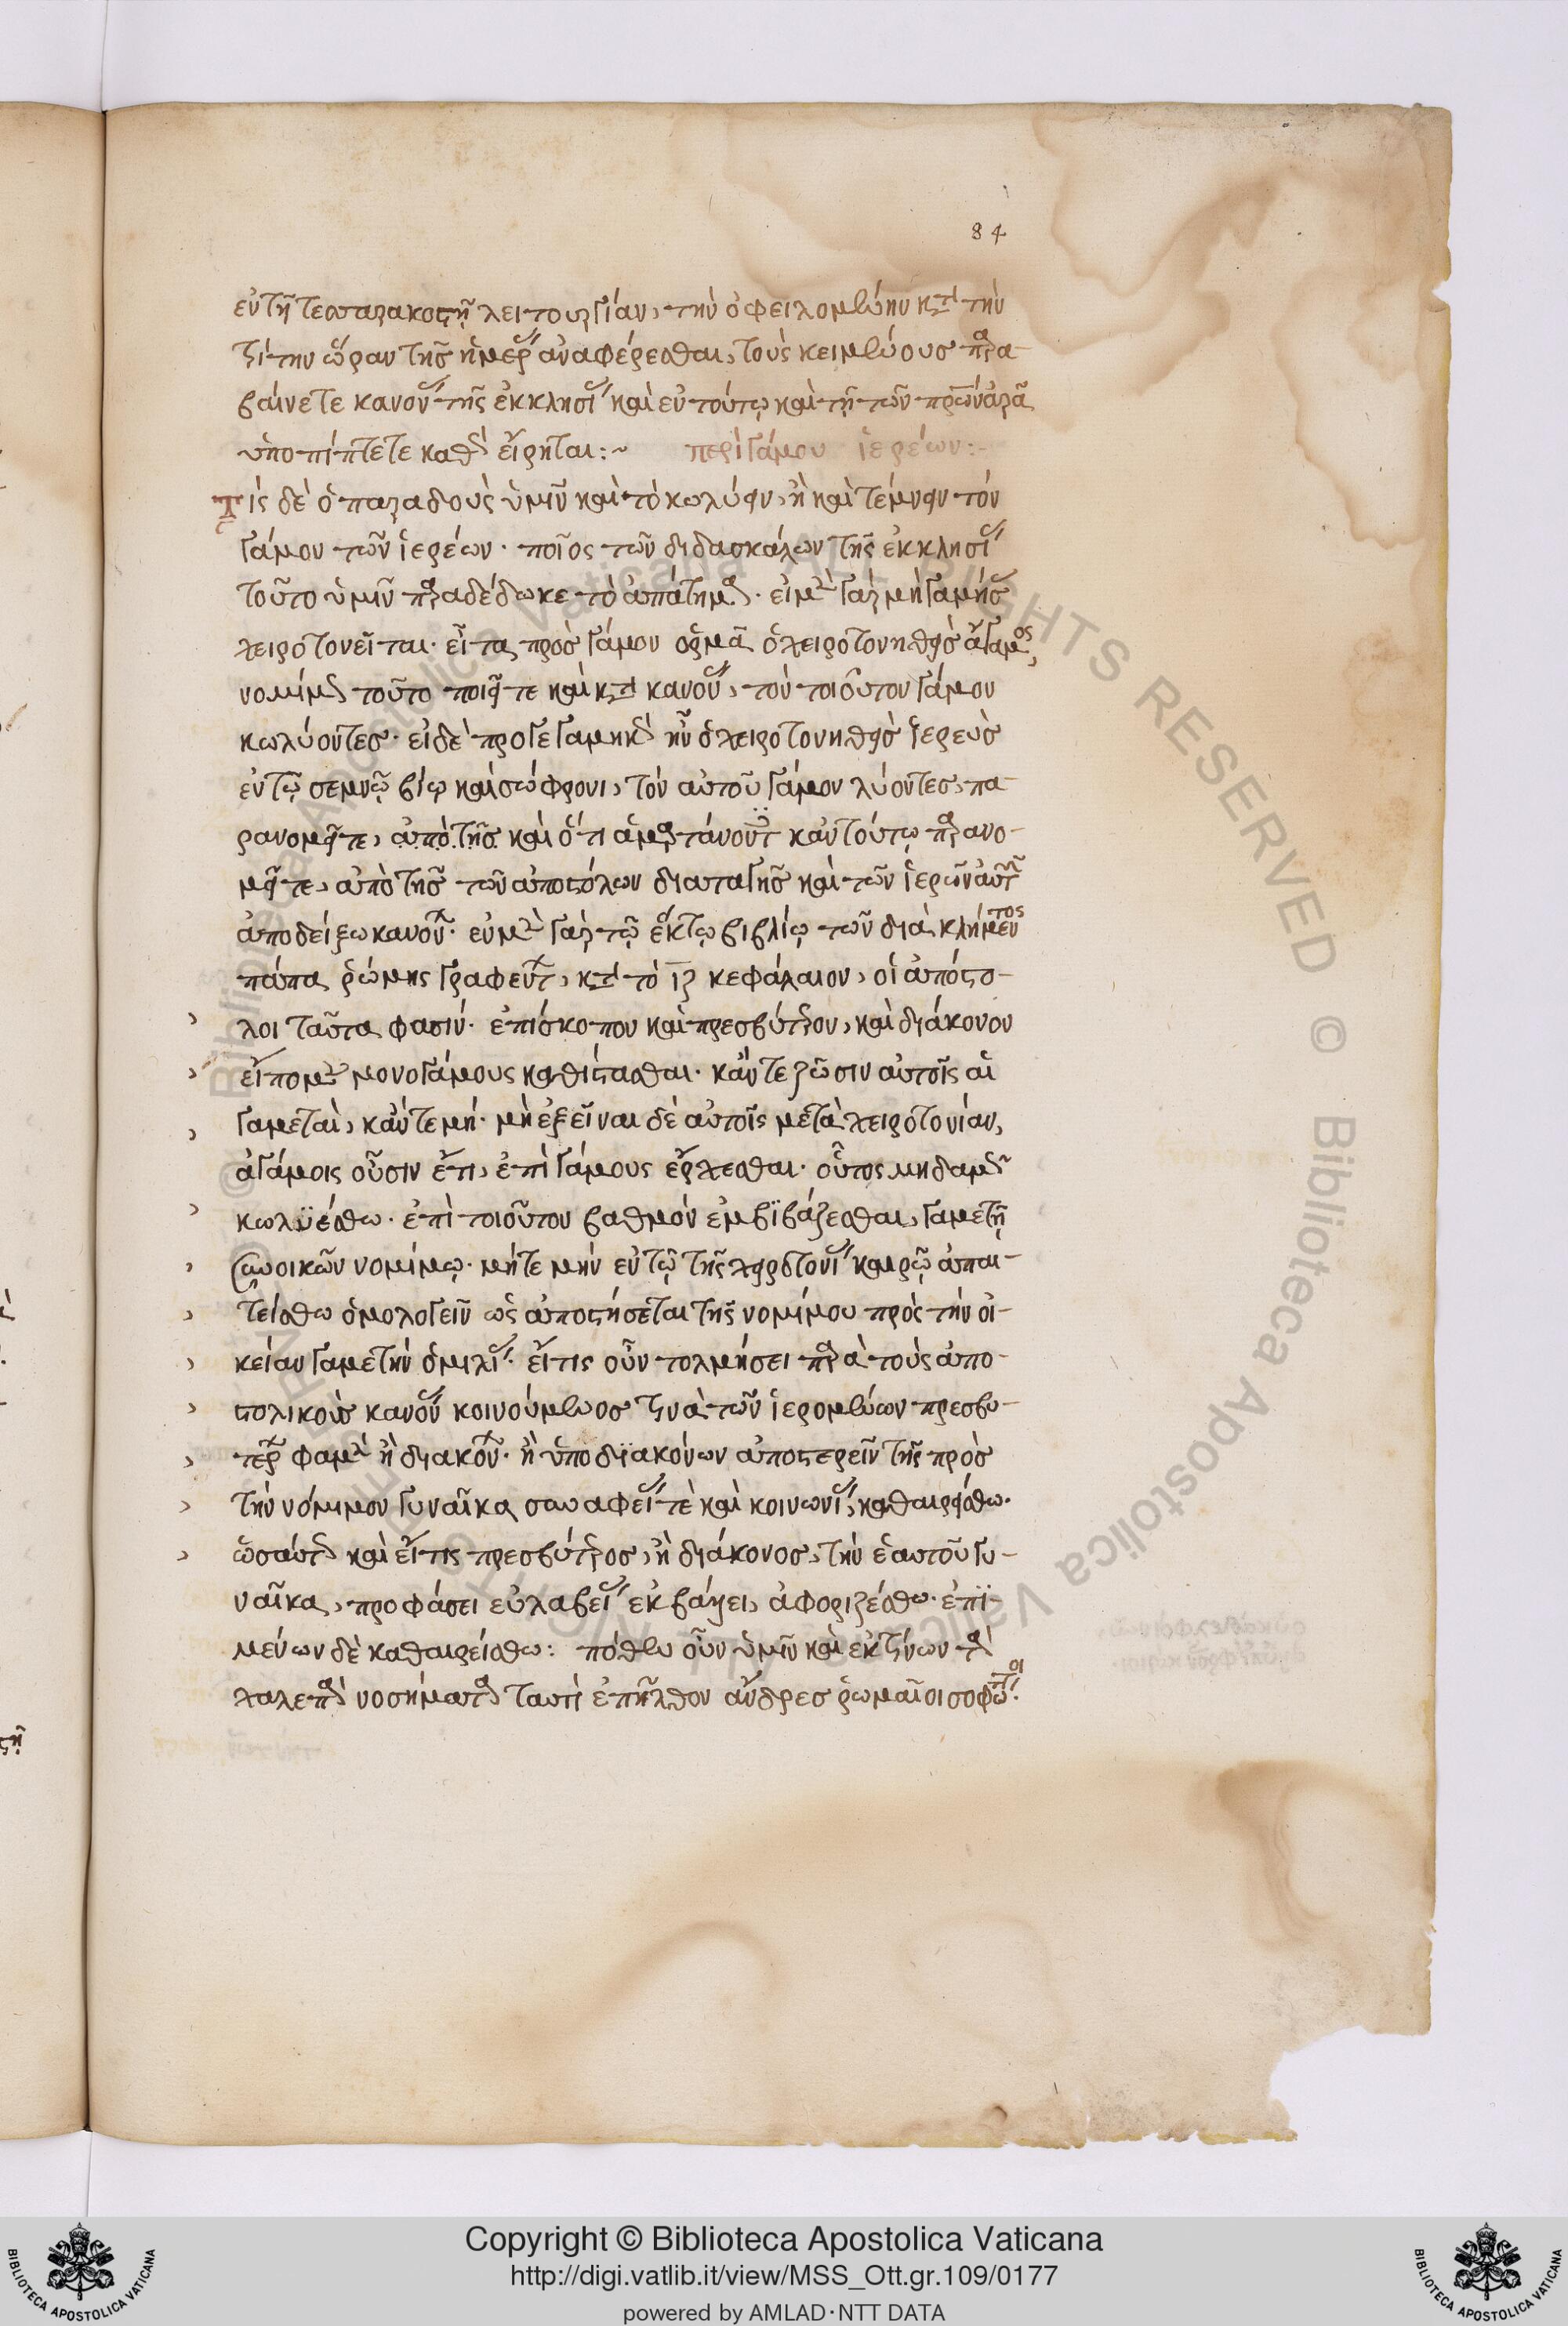 84
ἐν τῆ τεσσαρακοστῆ λειτουργίαν, τὴν ὀφειλομένην κατὰ τὴν
τρίτην ὥραν τῆς ἡμέρας ἀναφέρεσθαι, τοὺς κειμένους παρα-
βαίνετε κανόνας τῆς ἐκκλησίας καὶ ἐν τούτω καὶ τῆ τῶν πρώην ἀρᾶ
ὑποπίπτετε καθὼς εἴρηται:~ περὶ γάμου ἱερέων:-
Τίς δὲ ὁ παραδοὺς ὑμῖν καὶ τὸ κωλύειν, ἢ καὶ τέμνειν τὸν
γάμον τῶν ἱερέων· ποῖος τῶν διδασκάλων τῆς ἐκκλησίας
τοῦτο ὑμῖν παραδέδωκε τὸ ἀπάτημα· εἰ μὲν γὰρ μὴ γαμήσας
χειροτονεῖται· εἶτα πρὸς γάμον ὁρμᾶ ὁ χειροτονηθεὶς ἄγαμος,
νομίμως τοῦτο ποιεῖτε καὶ κατὰ κανόνας, τὸν τοιοῦτον γάμον
κωλύοντες· εἰ δὲ προγεγαμηκὼς ἦν ὁ χειροτονηθεὶς ἱερεὺς
ἐν τῶ σεμνῶ βίω καὶ σώφρονι, τὸν αὐτοῦ γάμον λύοντες, πα-
ρανομεῖτε, ἀπὸ τῆς καὶ ὅτι ἁμαρτάνοντες κἀν τούτω παρανο-
μεῖτε, ἀπὸ τῆς τῶν ἀποστόλων διαταγῆς καὶ τῶν ἱερῶν αὐτῶν
ἀποδείξω κανόνων· ἐν μὲν γὰρ τῶ ἕκτω βιβλίω τῶν διὰ κλήμεντος
πάπα ῥώμης γραφέντων, κατὰ τὸ ιζ κεφάλαιον, οἱ ἀπόστο-
λοι ταῦτα φασίν· ἐπίσκοπον καὶ πρεσβύτερον, καὶ διάκονον
εἴπομεν μονογάμους καθίστασθαι· κἄν τε ζῶσιν αὐτοῖς αἱ
γαμεταὶ, κἄν τε μή· μὴ ἐξεῖναι δὲ αὐτοῖς μετὰ χειροτονίαν,
ἀγάμοις οὖσιν ἔτι, ἐπὶ γάμους ἔρχεσθαι· οὗτος μηδαμῶς
κωλϋέσθω· ἐπὶ τοιοῦτον βαθμὸν ἐμβϊβάζεσθαι, γαμετῆ
συνοικῶν νομίμω· μήτε μὴν ἐν τῶ τῆς χειροτονίας καιρῶ ἀπαι-
τείσθω ὁμολογεῖν ὡς ἀποστήσεται τῆς νομίμου πρὸς τὴν οἰ-
κείαν γαμετὴν ὁμιλίας· εἴ τις οὖν τολμήσει παρὰ τοὺς ἀπο-
στολικοὺς κανόνας κοινούμενος τινὰ τῶν ἱερομένων πρεσβυ-
τέρων φαμὲν ἢ διακόνων· ἢ ὑποδϊακόνων ἀποστερεῖν τῆς πρὸς
τὴν νόμιμον γυναῖκα συναφείας τὲ καὶ κοινωνίας, καθαιρείσθω·
ὡσαύτως καὶ εἴ τις πρεσβύτερος, ἢ διάκονος, τὴν ἑαυτοῦ γυ-
ναῖκα, προφάσει εὐλαβείας ἐκβάλλει, ἀφοριζέσθω· ἐπϊ-
μένων δὲ καθαιρείσθω: πόθεν οὖν ὑμῖν καὶ ἐκ τίνων τὰ
χαλεπὰ νοσήματα ταυτὶ ἐπῆλθον ἄνδρες ῥωμαῖοι σοφώτατοι·
Copyright © Biblioteca Apostolica Vaticana
http://digi.vatlib.it/view/MSS_Ott.gr.109/0177
powered by AMLAD·NTT DATA